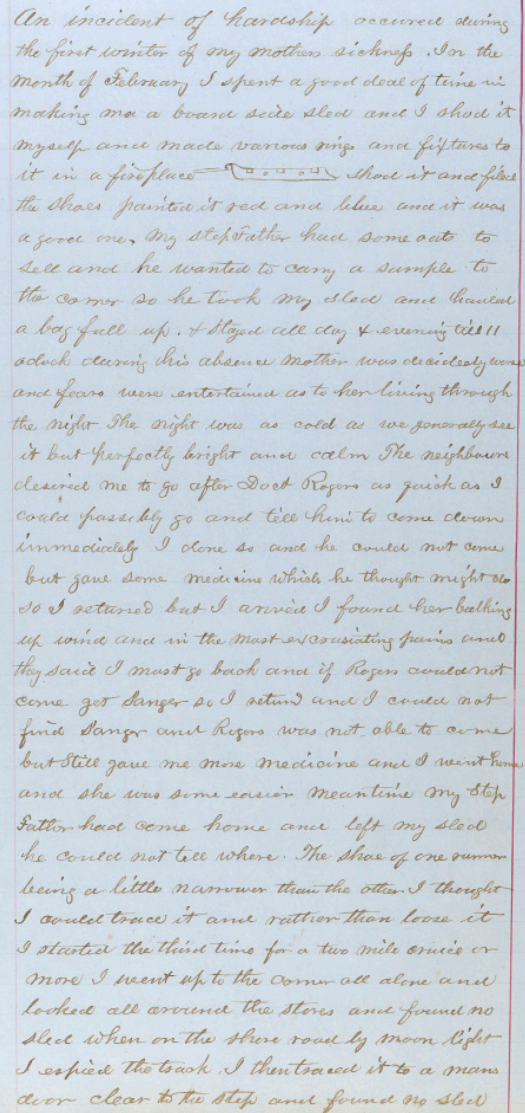 An incident of hardship accured during
the first winter of my mothers sickness. In the
month of February I spent a good deal of time in
making me a board side sled and I shod it
myself and made various rings and fixtures to
it in a fireplace shod it and filed
the shoes painted it red and blue and it was
a good one, My step Father had some oats to
sell and he wanted to carry a sample to
the corner so he took my sled and hauled
a bag full up. & stayed all day & evening till 11
oclock during his absence Mother was decidedly worse
and fears were entertained as to her living through
the night The night was as cold as we generally see
it but perfectly bright and calm The neighbours
desired me to go after Doct Rogers as quick as I
could possibly go and tell him to come down
immediately I done so and he could not come
but gave some medicine which he thought might do
so I returned but I arived I found her belking
up wind and in the most excrusiating pains and
they said I must go back and if Rogers could not
come get Sanger so I return'd and I could not
find Sanger and Rogers was not able to come
but Still gave me more medicine and I went home
and she was some easier meantime my Step
Father had come home and left my sled
he could not tell where. The shoe of one runner
being a little narrower than the other I thought
I could trace it and rather than loose it
I started the third time for a two mile cruice or
more I went up to the corner all alone and
looked all around the stores and found no
sled when on the shore road by moon light
I espied the track I then traced it to a mans
door clear to the step and found no sled